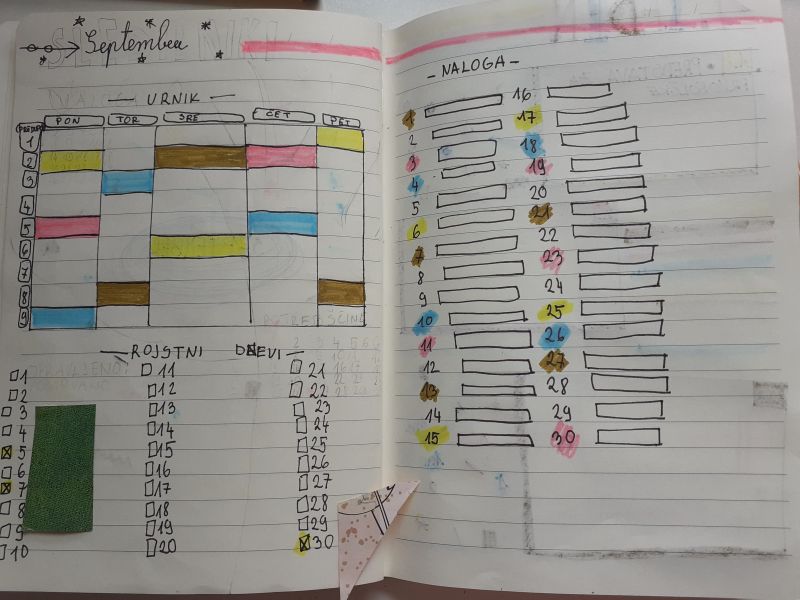 September
URNIK
PON TOR SRE ČET PET
1
2
3
4
5
6
7
8
9
ROJSTNI DNEVI
1 11 21
2 12 22
3 13 23
4 14 24
5 15 25
6 16 26
7 17 27
8 18 28
9 19 29
10 20 30
- NALOGA -
1 16
2 17
3 18
4 19
5 20
6 21
7 22
8 23
9 24
10 25
11 26
12 27
13 28
14 29
15 30